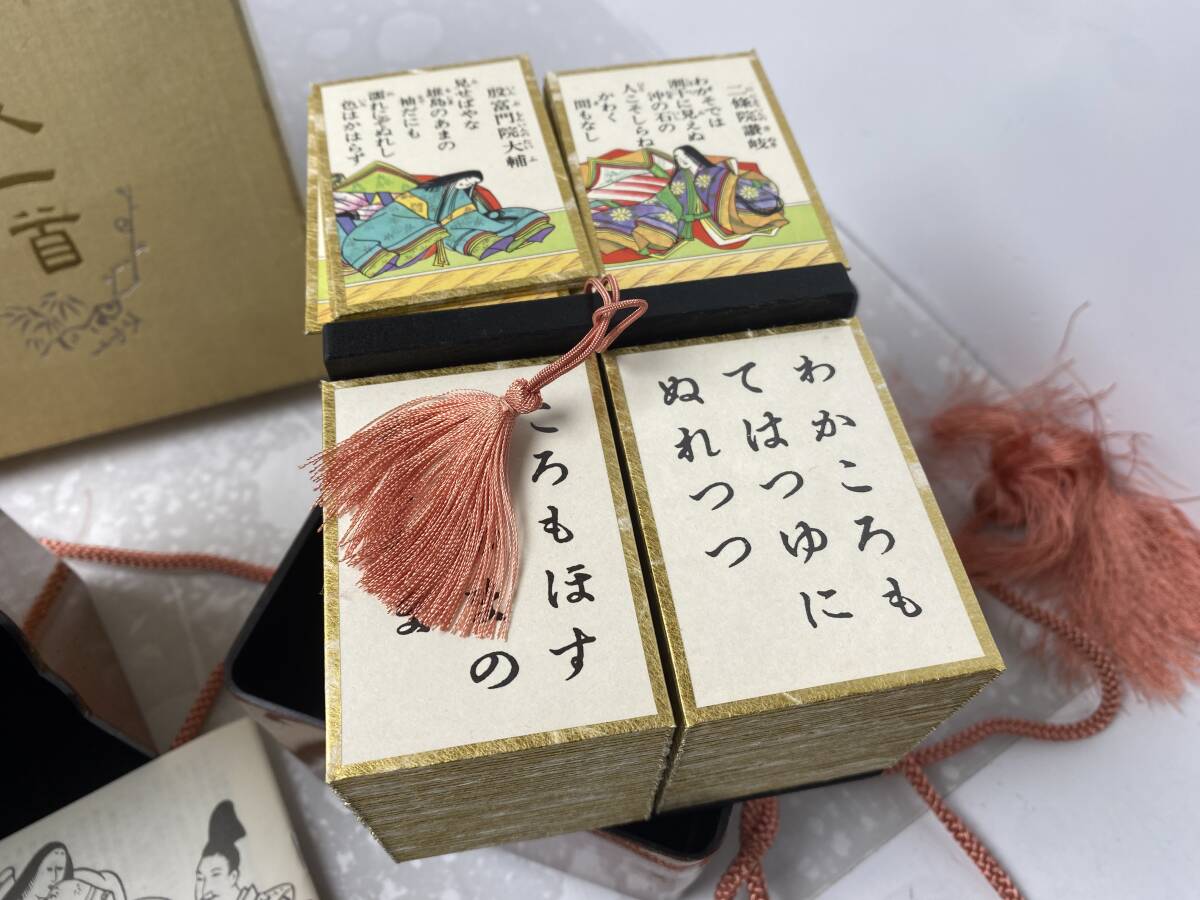 人一首
殷富門院大輔
見せばやな
雄島のあまの
袖だにも
濡れにぞぬれし
色はかはらず
二條院讃岐
わがそでは
潮干に見えぬ
沖の石の
人こそしらね
かわく
間もなし
ころもほす
の
わかころも
てはつゆに
ぬれつつ